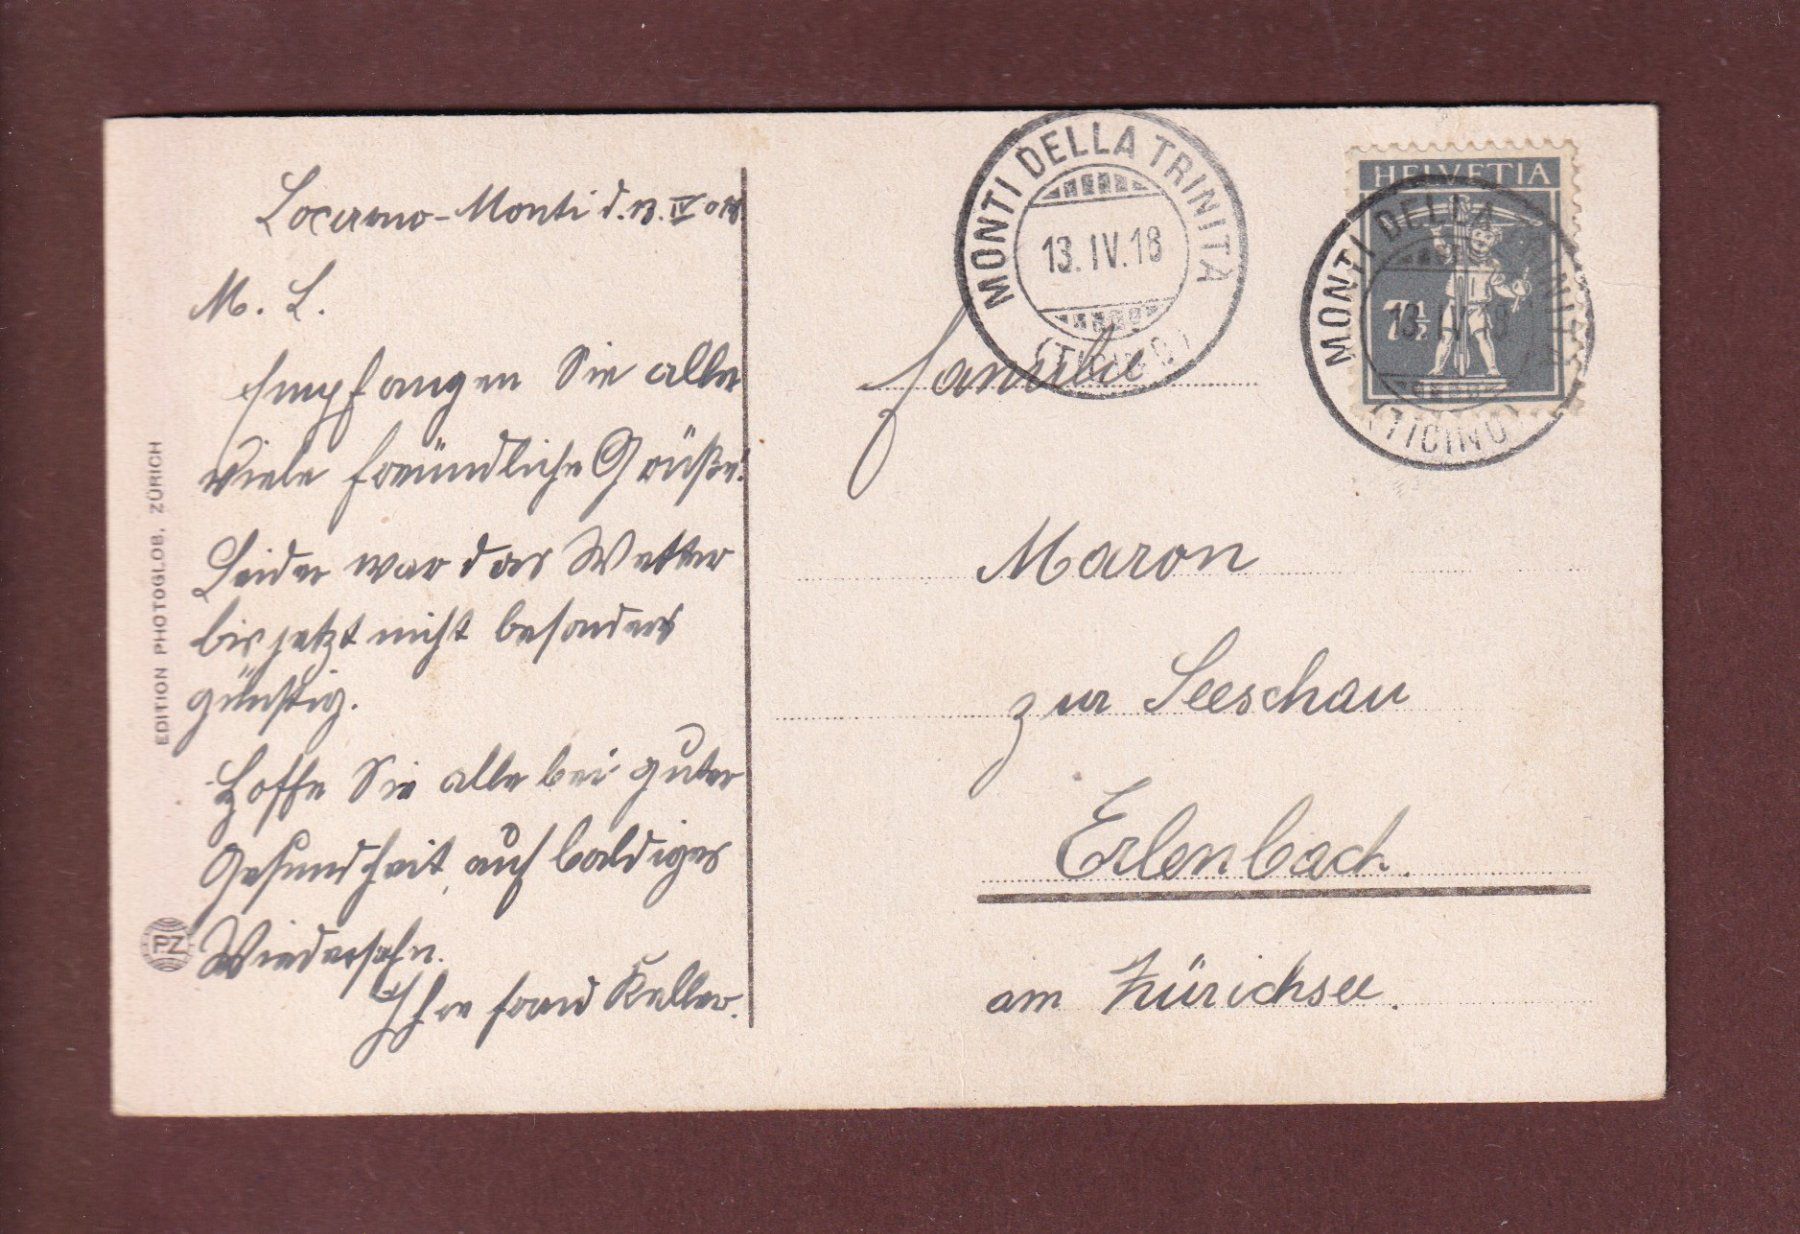 Locarno-Monti d. 13. IV 018.
M. L.
Empfangen Sie alle
viele freundliche Grüße!
Leider war das Wetter
bis jetzt nicht besonders
günstig.
Hoffe Sie alle bei guter
Gesundheit, auf baldiges
Wiedersehn.
Ihre Frau Keller.
EDITION PHOTOGLOB, ZÜRICH
PZ
MONTI DELLA TRINITA
13. IV. 18
(TICINO)
HELVETIA
7½
MONTI DELLA TRINITA
13. IV. 18
(TICINO)
Familie
Maron
zur Seeschau
Erlenbach.
am Zürichsee.